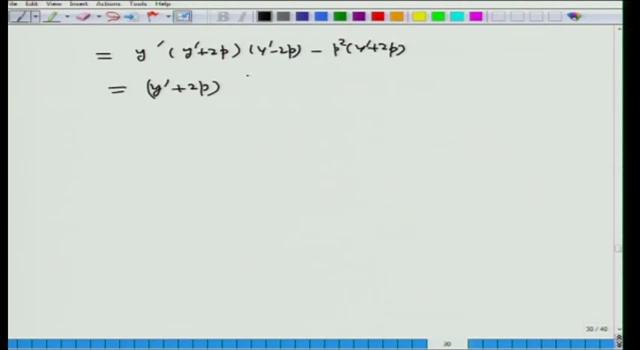 Edit View Insert Actions Tools Help
= y'(y'+2p)(y'-2p) - p²(y'+2p)
= (y'+2p)
30 / 40
30